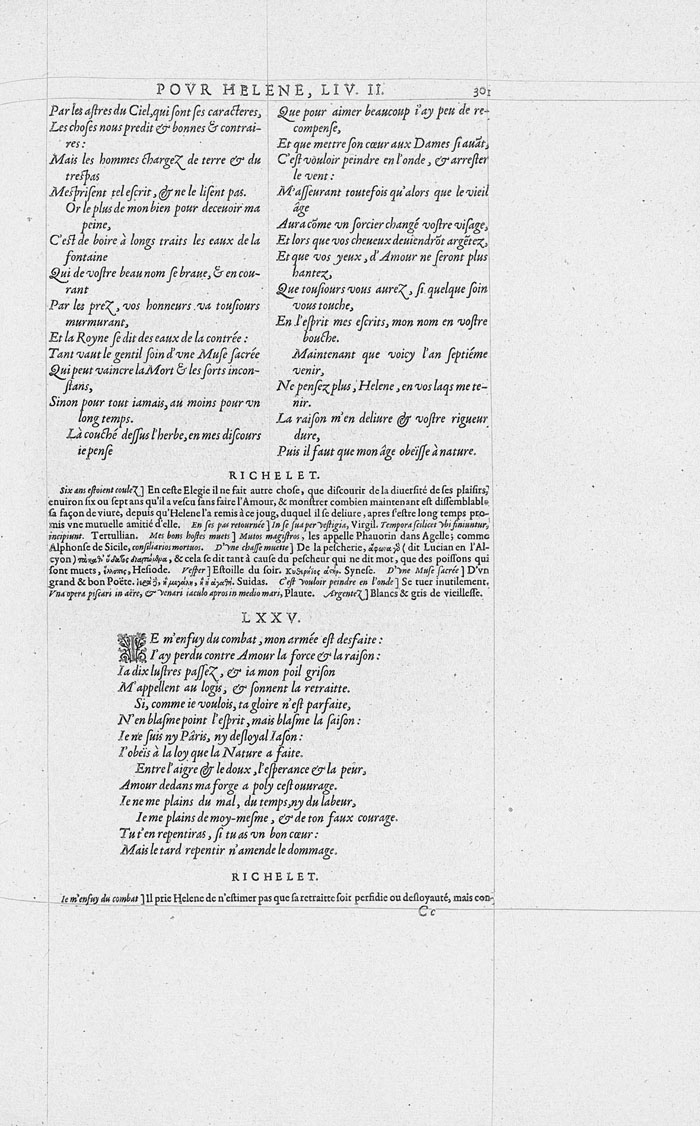 POVR HELENE, LIV. II. 301
Par les astres du Ciel, qui sont ses caracteres,
Les choses nous predit & bonnes & contrai-
res:
Mais les hommes chargez de terre & du
trespas
Mesprisent tel escrit, & ne le lisent pas.
Or le plus de mon bien pour deceuoir ma
peine,
C'est de boire à longs traits les eaux de la
fontaine
Qui de vostre beau nom se braue, & en cou-
rant
Par les prez, vos honneurs va tousiours
murmurant,
Et la Royne se dit des eaux de la contrée:
Tant vaut le gentil soin d'vne Muse sacrée
Qui peut vaincre la Mort & les sorts incon-
stans,
Sinon pour tout iamais, au moins pour vn
long temps.
Là couché dessus l'herbe, en mes discours
ie pense
Que pour aimer beaucoup i'ay peu de re-
compense,
Et que mettre son cœur aux Dames si auãt,
C'est vouloir peindre en l'onde, & arrester
le vent:
M'asseurant toutefois qu'alors que le vieil
âge
Aura cõme vn sorcier changé vostre visage,
Et lors que vos cheueux deuiendrõt argẽtez,
Et que vos yeux, d'Amour ne seront plus
hantez,
Que tousiours vous aurez, si quelque soin
vous touche,
En l'esprit mes escrits, mon nom en vostre
bouche.
Maintenant que voicy l'an septiéme
venir,
Ne pensez plus, Helene, en vos laqs me te-
nir.
La raison m'en deliure & vostre rigueur
dure,
Puis il faut que mon âge obeïsse à nature.
RICHELET.
Six ans estoient coulez] En ceste Elegie il ne fait autre chose, que discourir de la diuersité de ses plaisirs,
enuiron six ou sept ans qu'il a vescu sans faire l'Amour, & monstrer combien maintenant est dissemblable
sa façon de viure, depuis qu'Helene l'a remis à ce joug, duquel il se deliure, apres s'estre long temps pro-
mis vne mutuelle amitié d'elle. En ses pas retournée] In se sua per vestigia, Virgil. Tempora scilicet vbi finiuntur,
incipiunt. Tertullian. Mes bons hostes muets] Mutos magistros, les appelle Phauorin dans Agelle; comme
Alphonse de Sicile, consiliarios mortuos. D'vne chasse muette] De la pescherie, (dit Lucian en l'Al-
cyon) & cela se dit tant à cause du pescheur qui ne dit mot, que des poissons qui
sont muets, Hesiode. Vesper] Estoille du soir. Synese. D'vne Muse sacrée] D'vn
grand & bon Poëte. Suidas. C'est vouloir peindre en l'onde] Se tuer inutilement.
Vna opera piscari in aëre, & venari iaculo apros in medio mari, Plaute. Argentez] Blancs & gris de vieillesse.
LXXV.
IE m'enfuy du combat, mon armée est desfaite:
I'ay perdu contre Amour la force & la raison:
Ia dix lustres passez, & ia mon poil grison
M'appellent au logis, & sonnent la retraitte.
Si, comme ie voulois, ta gloire n'est parfaite,
N'en blasme point l'esprit, mais blasme la saison:
Ie ne suis ny Pâris, ny desloyal Iason:
I'obeïs à la loy que la Nature a faite.
Entre l'aigre & le doux, l'esperance & la peur,
Amour dedans ma forge a poly cest ouurage.
Ie ne me plains du mal, du temps, ny du labeur,
Ie me plains de moy-mesme, & de ton faux courage.
Tu t'en repentiras, si tu as vn bon cœur:
Mais le tard repentir n'amende le dommage.
RICHELET.
Ie m'enfuy du combat] Il prie Helene de n'estimer pas que sa retraitte soit perfidie ou desloyauté, mais con-
Cc